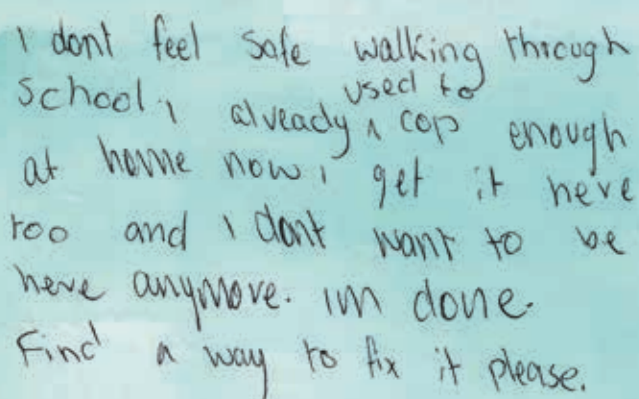 I dont feel safe walking through
school, I already used to cop enough
at home now I get it here
too and I dont want to be
here anymore. im done.
Find a way to fix it please.